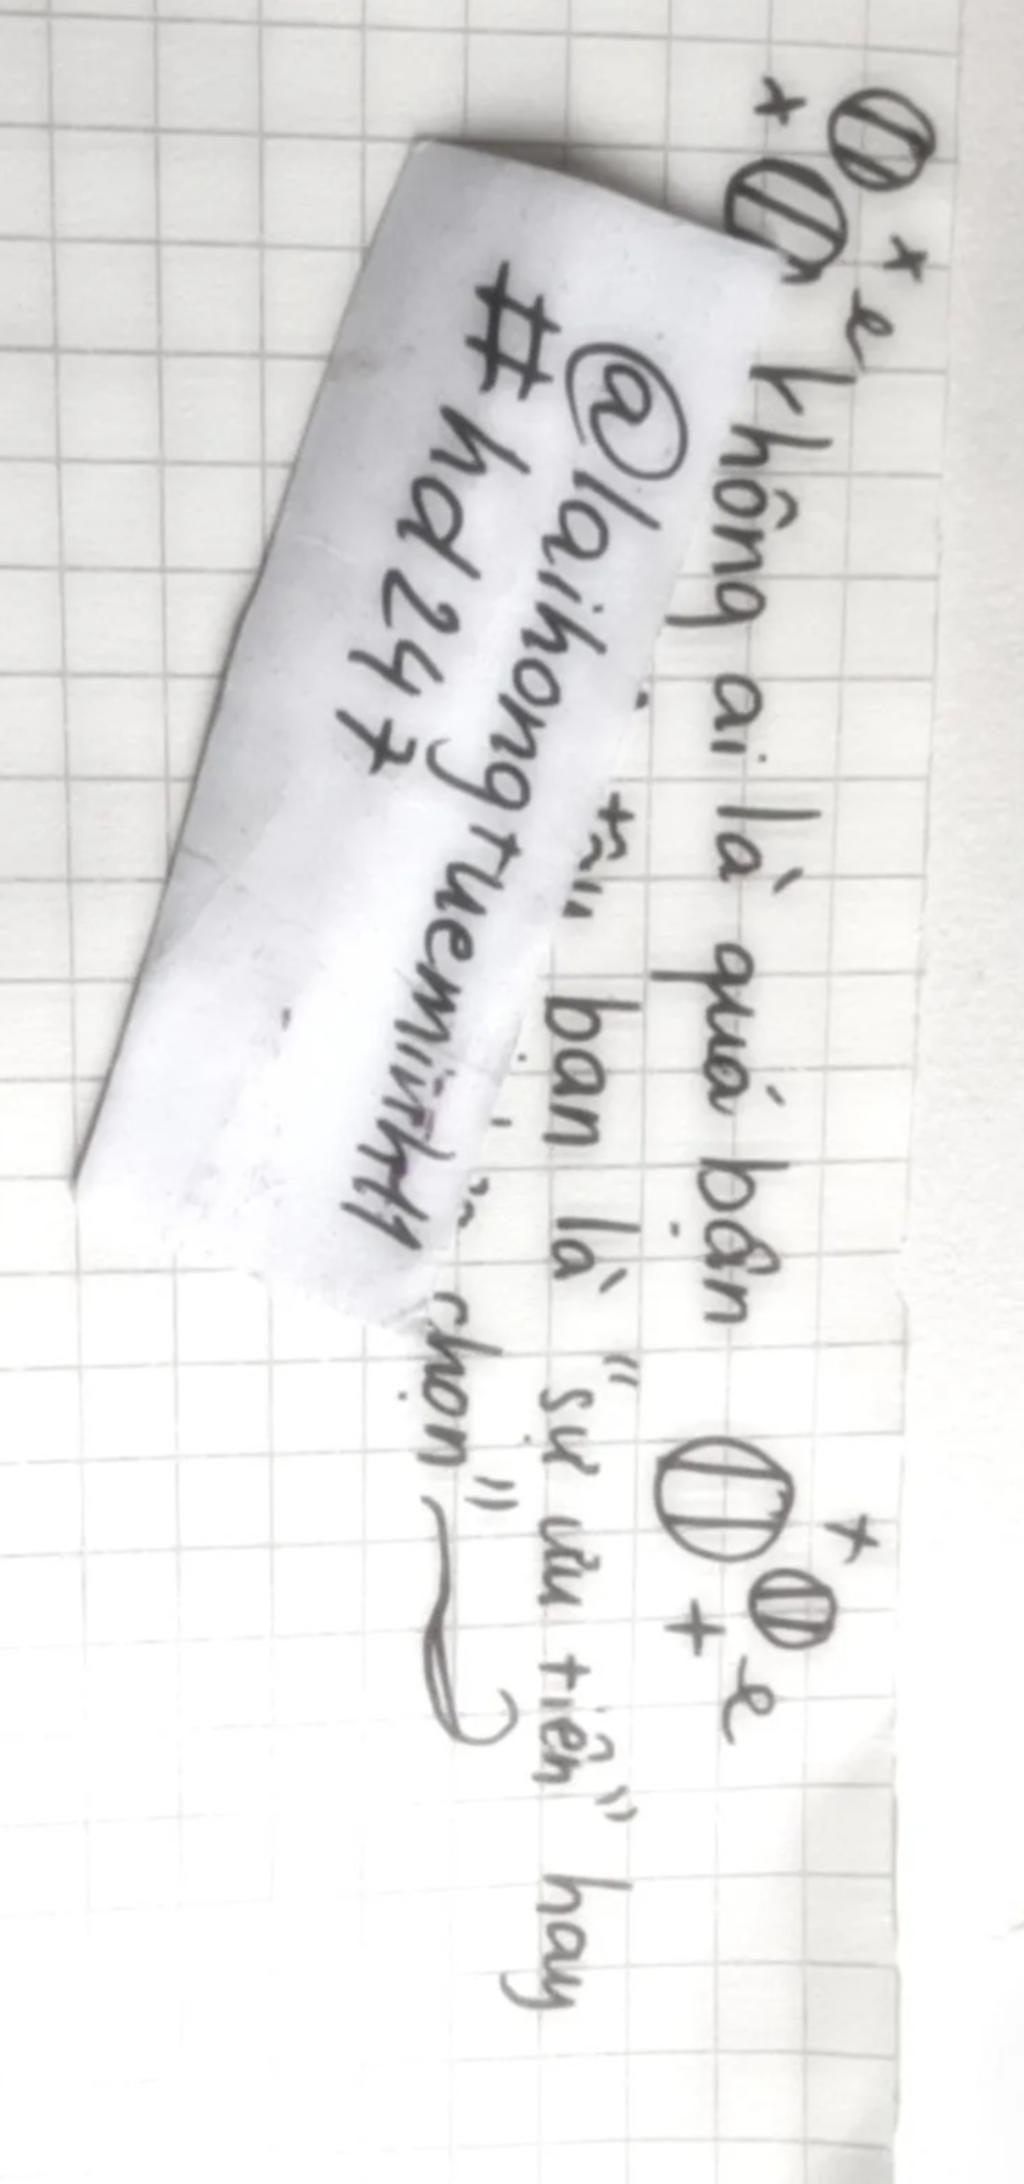 không ai là quá bận
bạn là "sự ưu tiên" hay
chọn"
@laihongtueminh11
#hd247